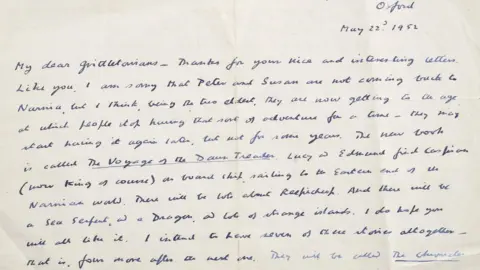 Oxford
May 22ⁿᵈ 1952
My dear Grittletonians – Thanks for your nice and interesting letters.
Like you, I am sorry that Peter and Susan are not coming back to
Narnia, but I think, being the two eldest, they are now getting to an age
at which people stop having that sort of adventure for a time – they may
start having it again later, but not for some years. The new book
is called The Voyage of the Dawn Treader. Lucy & Edmund find Caspian
(now King of course) on board ship, sailing to the Eastern end of the
Narnian world. There will be lots about Reepicheep. And there will be
a Sea Serpent, & a Dragon, & lots of strange islands. I do hope you
will all like it. I intend to have seven of these stories altogether –
that is, four more after the next one. They will be called The Chronicles